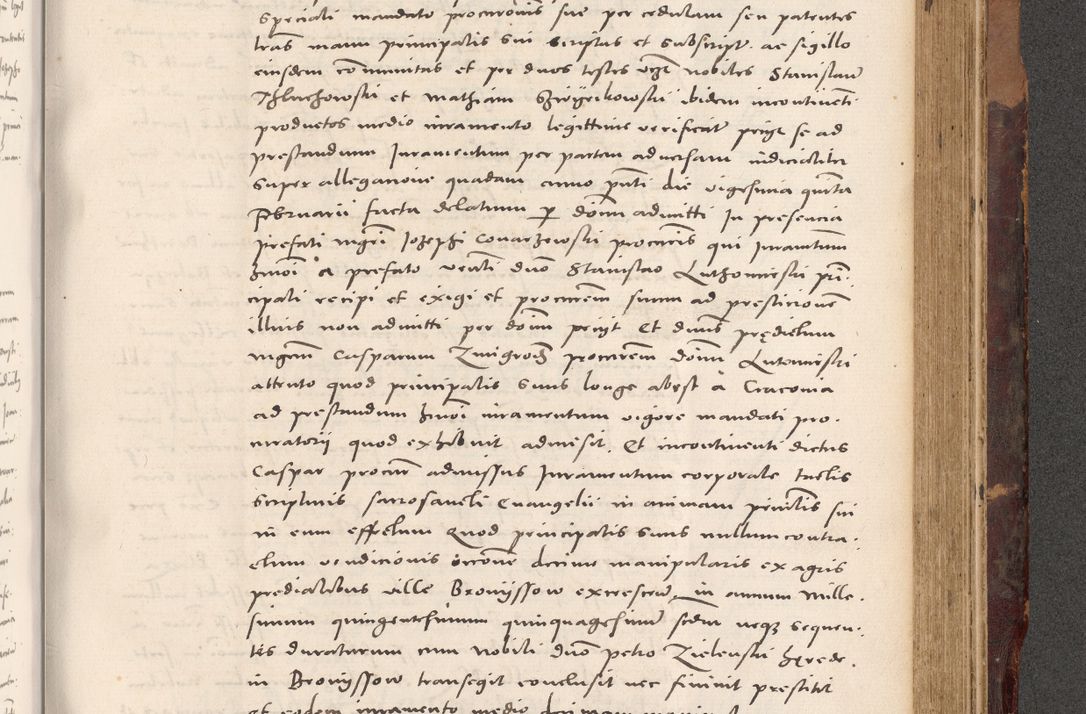 speciali mandato procuronis sue per cedulam seu patentes
lras manu principalis sui scriptas et subscript. ac sigillo
eiusdem communitas et per duos testes nobiles Stanislaum
et Mathiam ibidem incontinenti
productos medio iuramento legittime verificat petijt se ad
prestandum Juramentum per partem adversam iudicialiter
super allegacione quadam anno pnti die vigesima quinta
Februarii facta delatum per dominum admitti In presencia
prefati mgri Josephi procuris qui Juramentum
hmoi a prefato dno Stanislao prin
cipali recipi et exigi et procurem suum ad presticionem
illius non admitti per dominum petijt Et dnus prędictum
mgrum Casparum procurem domini
attento quod principalis suus longe abest a Cracovia
ad prestandum hmoi iuramentum vigore mandati pro.
curatorij quod exhibuit admisit. Et incontinenti dictus
Caspar procur admissus Juramentum corporale tactis
scripturis sacrosancti Evangelii in animam principalis sui
in eum effectum Quod principalis suus nullum contra.
ctum vendicionis decime manipularis ex agris
predialibus ville Bronijssow excrescen. in annum Mille.
simum quingentesimum quinquagesimum neque sequen.
tes duraturum cum nobili dno petro Zielenski hęrede.
in Bronijssow transegit conclusit nec finivit prestitit
et eodem iuramento medio